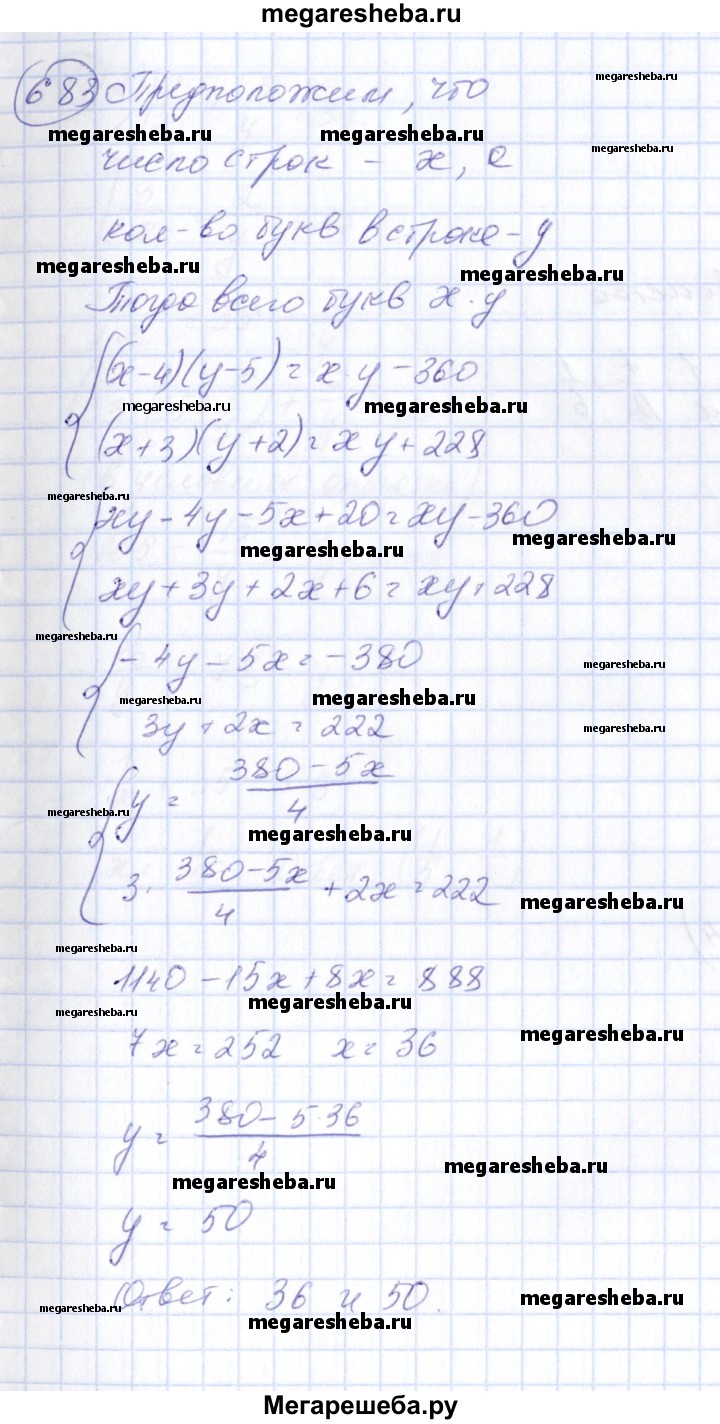 megaresheba.ru
683 Предположим, что
megaresheba.ru
megaresheba.ru megaresheba.ru
число строк - x, а
megaresheba.ru
кол-во букв в строке - y
megaresheba.ru megaresheba.ru
Тогда всего букв x·y
(x-4)(y-5)=x·y-360
megaresheba.ru megaresheba.ru
(x+3)(y+2)=xy+228
megaresheba.ru
xy-4y-5x+20=xy-360
megaresheba.ru megaresheba.ru
xy+3y+2x+6=xy+228
megaresheba.ru
-4y-5x=-380
megaresheba.ru
megaresheba.ru megaresheba.ru
3y+2x=222
megaresheba.ru
y=(380-5x)/4
megaresheba.ru
megaresheba.ru
3·(380-5x)/4+2x=222
megaresheba.ru
megaresheba.ru
1140-15x+8x=888
megaresheba.ru
megaresheba.ru
megaresheba.ru
7x=252 x=36
y=(380-5·36)/4
megaresheba.ru
megaresheba.ru
y=50
Ответ: 36 и 50.
megaresheba.ru
megaresheba.ru
megaresheba.ru
Мегарешеба.ру